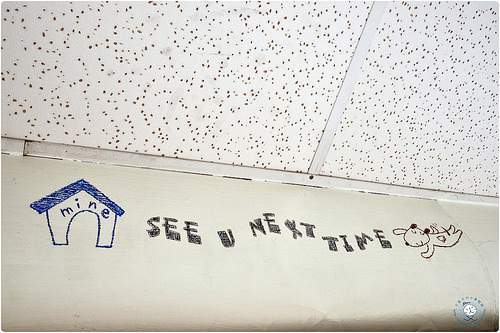 mine
SEE U NEXT TIME